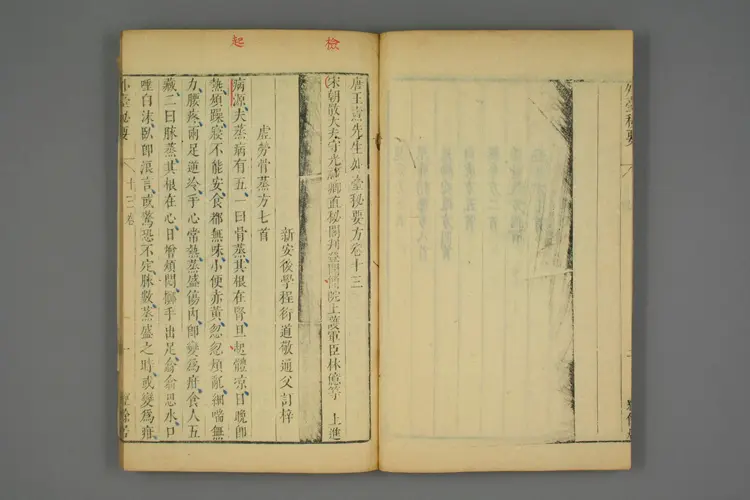 檢
起
唐王燾先生外臺秘要方卷十三
宋朝散大夫守光祿卿直秘閣判登聞檢院上護軍臣林億等 上進
新安後學程衍道敬通父訂梓
虛勞骨蒸方七首
病源夫蒸病有五一曰骨蒸其根在腎旦起體涼日晚即
熱煩躁寢不能安食都無味小便赤黃忽忽煩亂細喘無
力腰疼兩足逆冷手心常熱蒸盛傷內即變為疳食人五
藏二曰脉蒸其根在心日增煩悶擲手出足翕翕思水口
唾白沫臥即浪言或驚恐不定脉數蒸盛之時或變為疳
外臺秘要
十三卷
一
外臺秘要